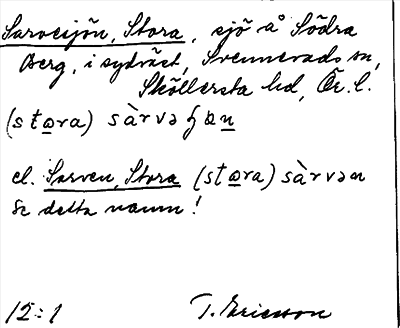 Sarvesjön, Stora, sjö å Södra
Berg, i sydväst, Svennevads sn,
Sköllersta hd, Ör. l.
(stɷra) sàrvəʃɷn
el. Sarven, Stora (stɷra) sàrvən
Se detta namn!
12:1 T. Ericsson